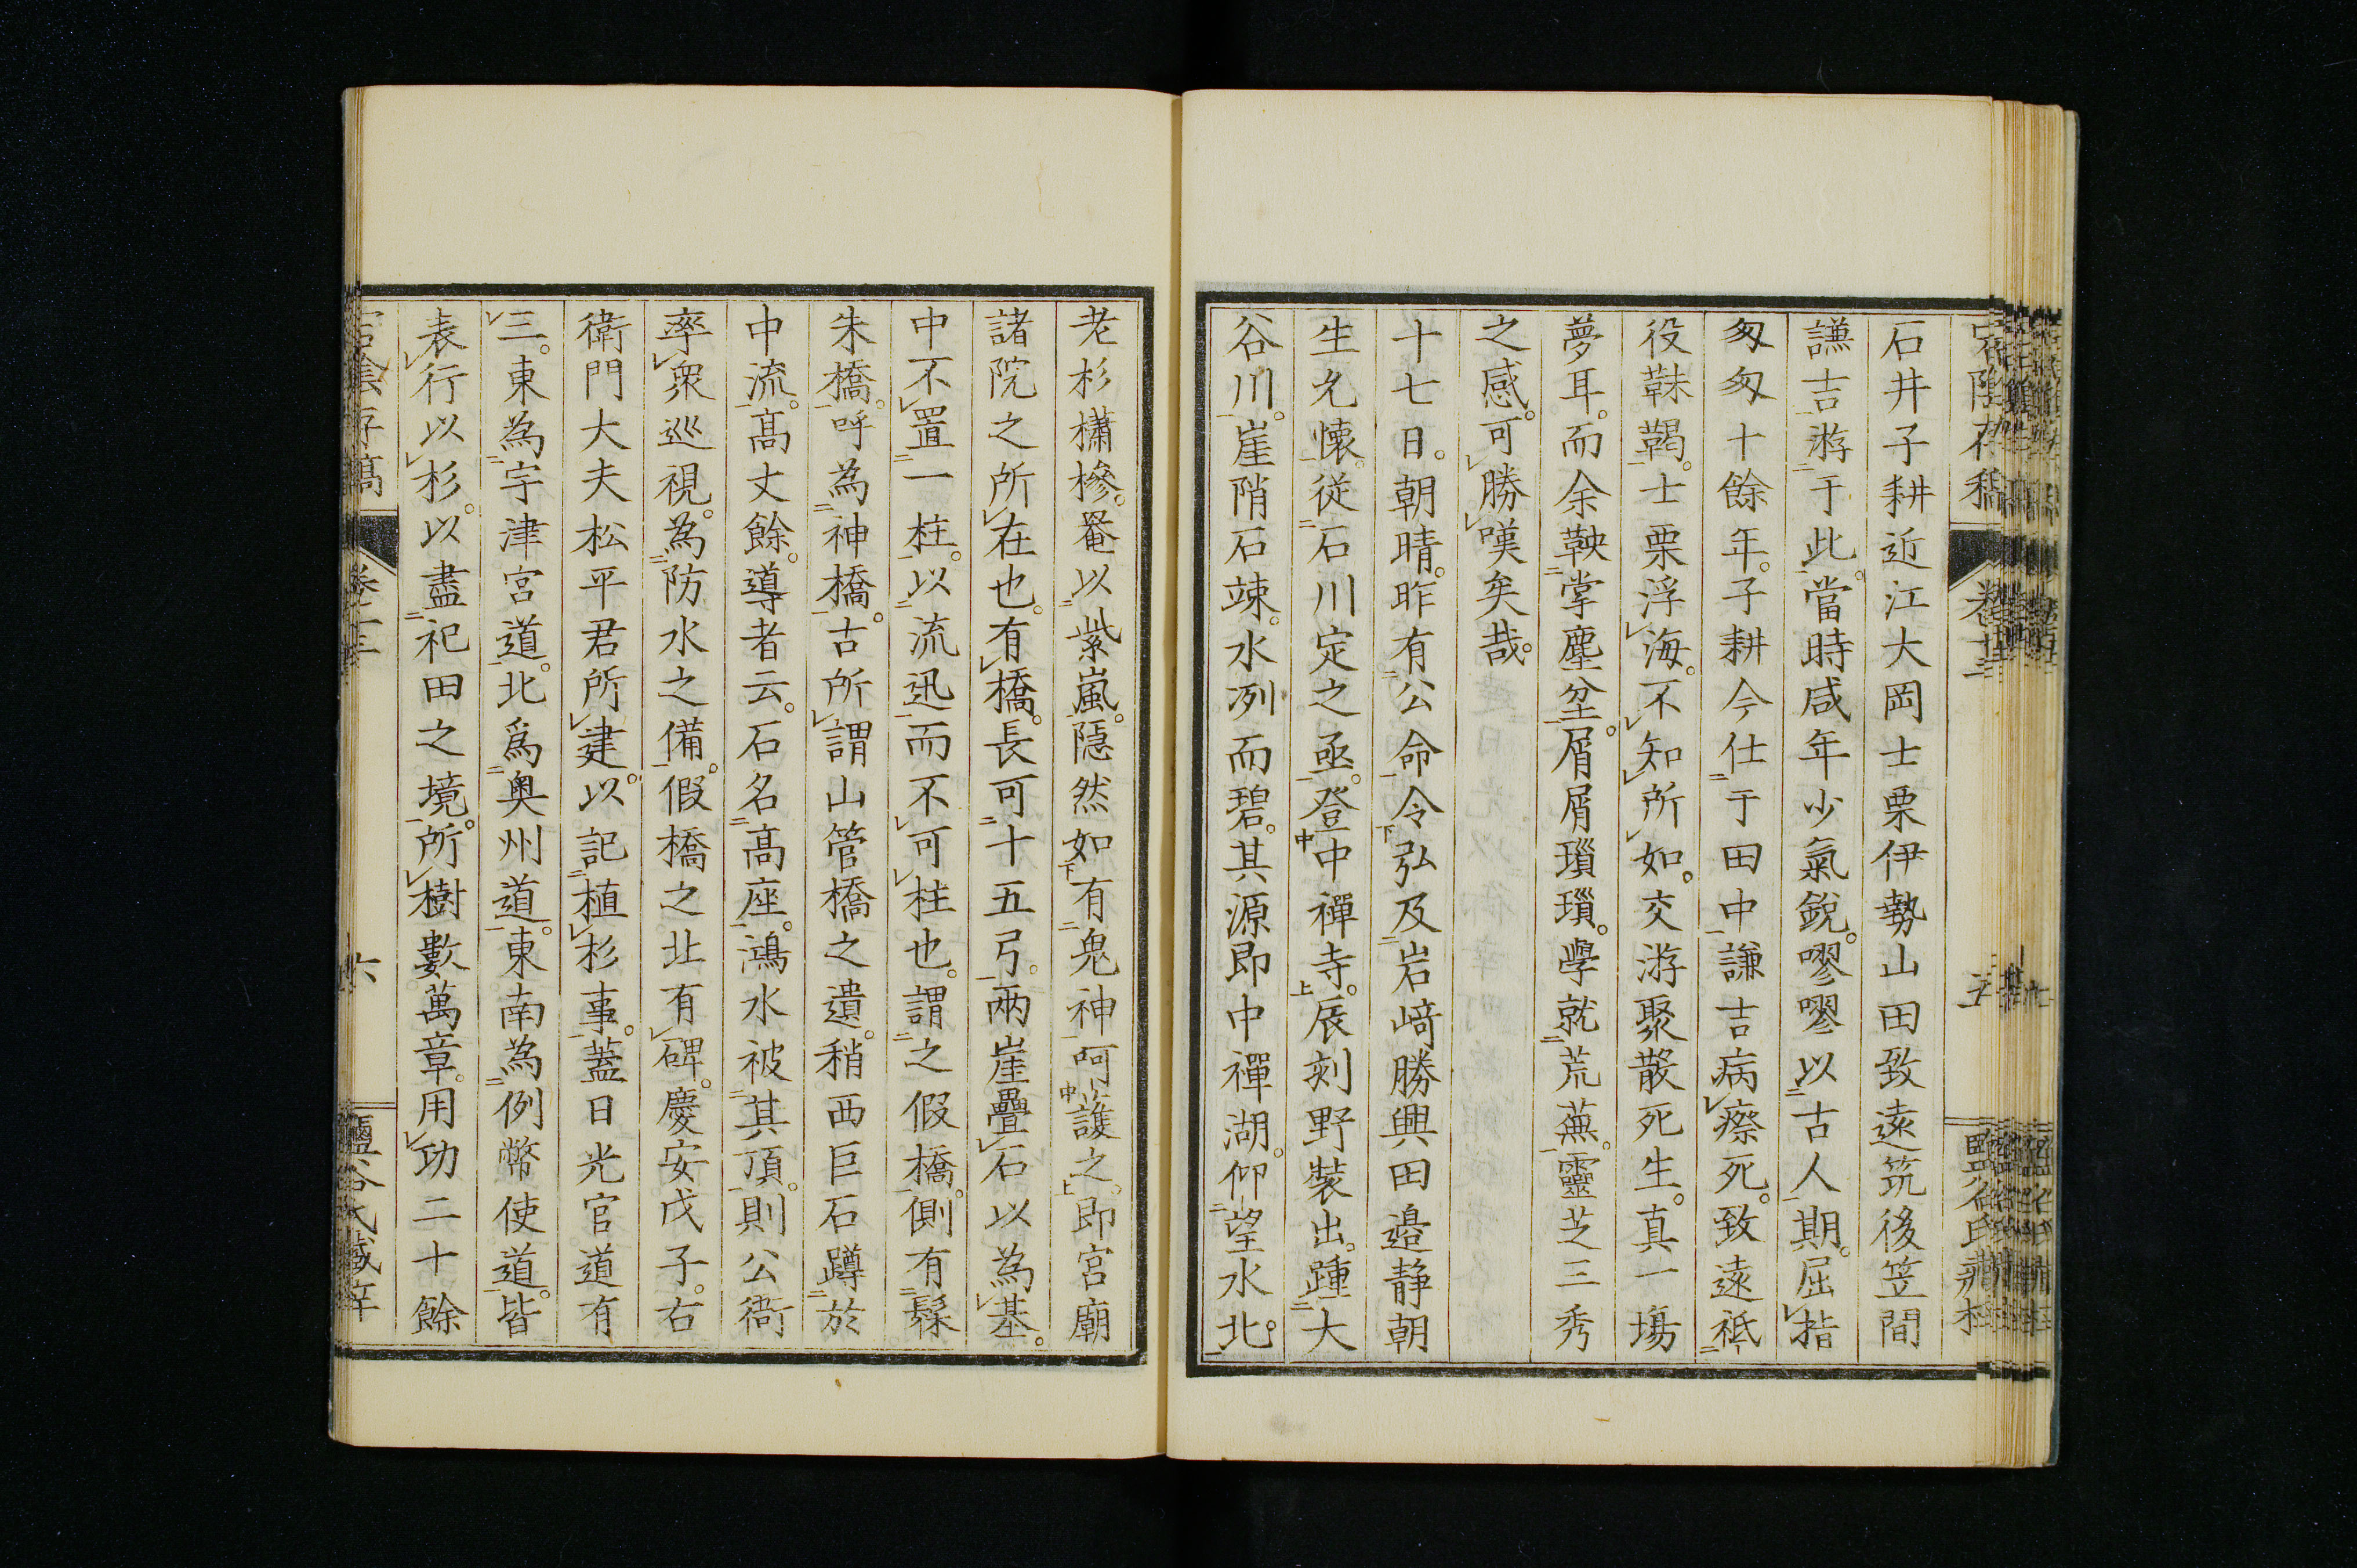 石井子耕近江大岡士栗伊勢山田致遠筑後笠間
謙吉游于此。當時咸年少氣銳。嘐嘐以古人期。屈指
匆匆十餘年。子耕今仕于田中。謙吉病瘵死。致遠祗
役靺鞨。士栗浮海。不知所如。交游聚散死生。真一場
夢耳。而余鞅掌塵坌。屑屑瑣瑣。學就荒蕪。靈芝三秀
之感。可勝嘆矣哉。
十七日。朝晴。昨有公命。令弘及岩﨑勝興田邉静朝
生允懐。従石川定之亟。登中禪寺。辰刻野裝出。踵大
谷川。崖陗石竦。水冽而碧。其源即中禪湖。仰望水北。
老杉櫹槮。罨以紫嵐。隠然如有鬼神呵護之。即宮廟
諸院之所在也。有橋。長可十五弓。兩崖疊石以為基。
中不置一柱。以流迅而不可柱也。謂之假橋。側有髹
朱橋。呼為神橋。古所謂山管橋之遺。稍西巨石蹲於
中流。髙丈餘。導者云。石名髙座。鴻水被其頂。則公衙
率衆巡視。為防水之備。假橋之北有碑。慶安戊子。右
衛門大夫松平君所建。以記植杉事。蓋日光官道有
三。東為宇津宮道。北爲奥州道。東南為例幣使道。皆
表行以杉。以盡祀田之境。所樹數萬章。用功二十餘
宕陰存稿
卷十三
六